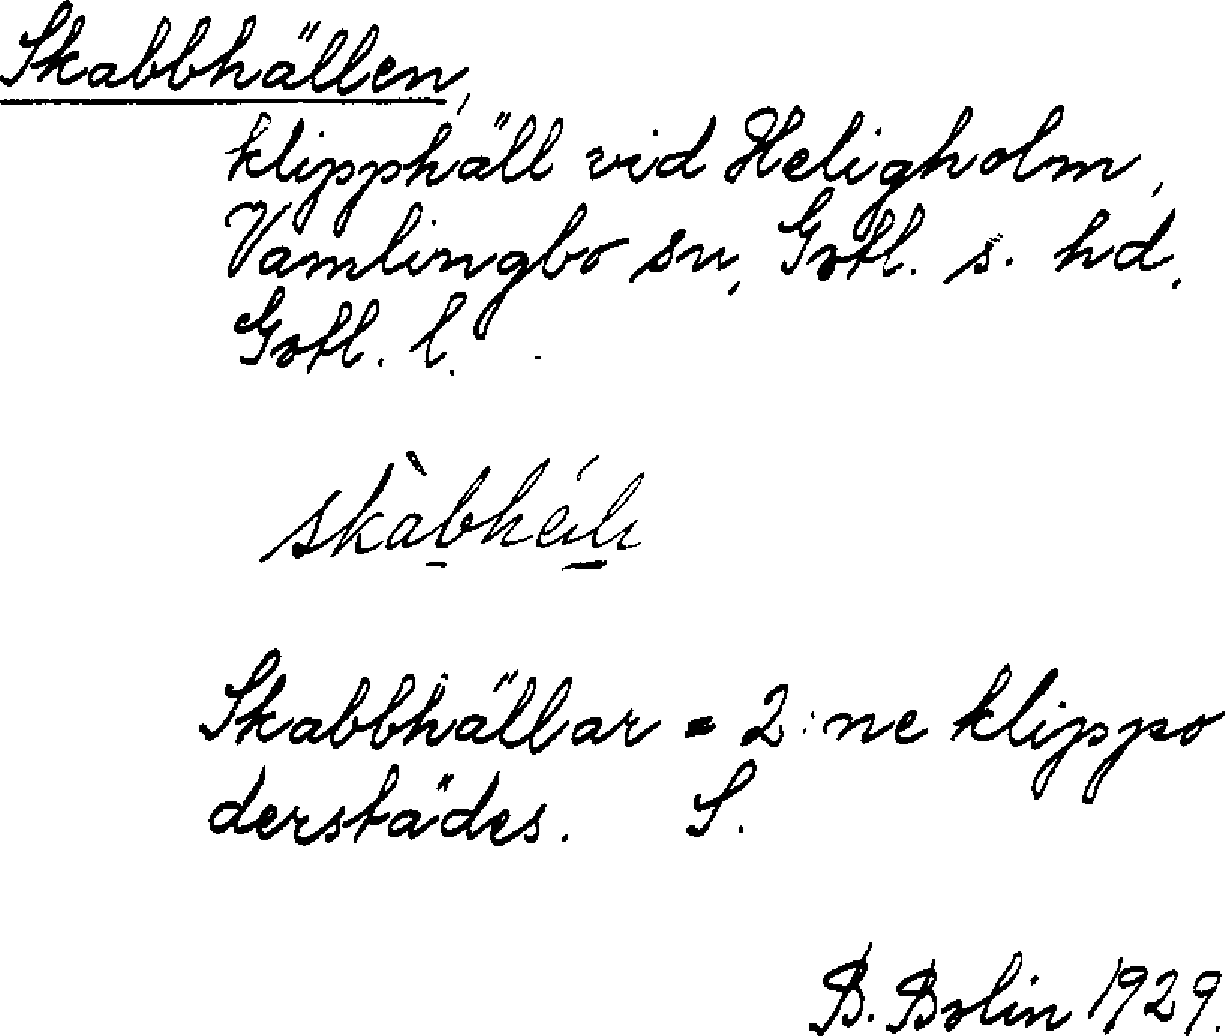 Skabbhällen,
klipphäll vid Heligholm,
Vamlingbo sn, Gotl. s. hd,
Gotl. l.
Skabbhällar = 2:ne klippo
derstädes. S.
B. Bolin 1929.